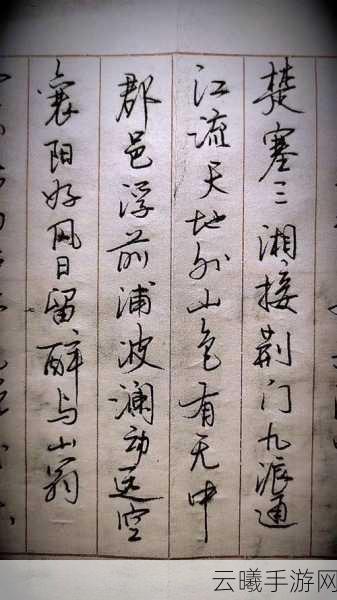 楚塞三湘接荆门九派通
江流天地外山色有无中
郡邑浮前浦波澜动远空
襄阳好风日留醉与山翁
云曦手游网